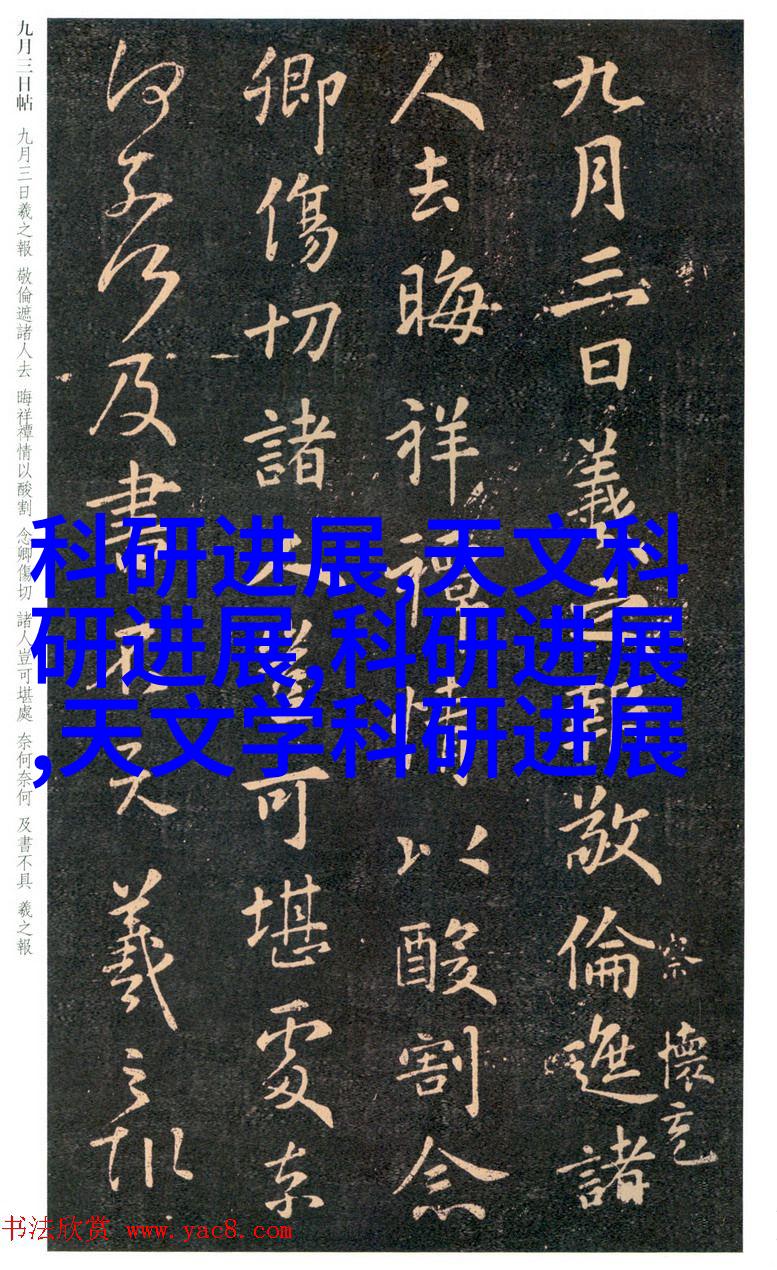 九月三日羲之報敬倫遮諸
察 懷充
人去晦祥禫情以酸割念
卿傷切諸人豈可堪處奈
何奈何及書不具羲之報
九月三日帖 九月三日羲之報 敬倫遮諸人去 晦祥禫情以酸割 念卿傷切 諸人豈可堪處 奈何奈何 及書不具 羲之報
科研进展,天文科
研进展,科研进展
,天文学科研进展
书法欣赏 www.yac8.com